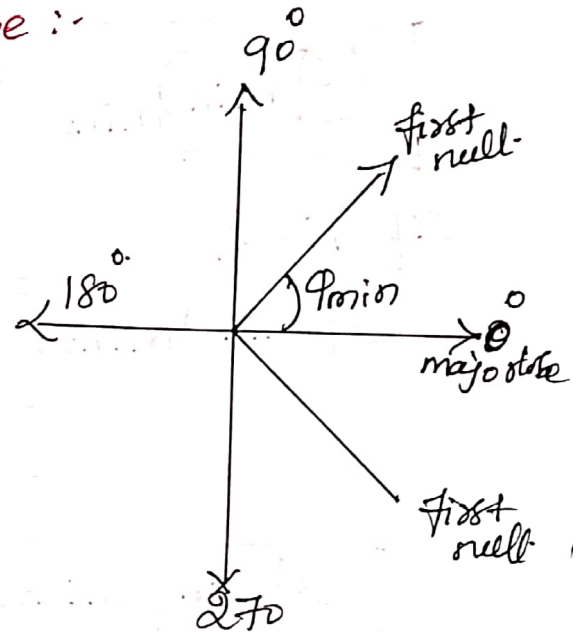 e :-
90°
first
null.
180°
φmin
0°
major lobe
first
null.
270